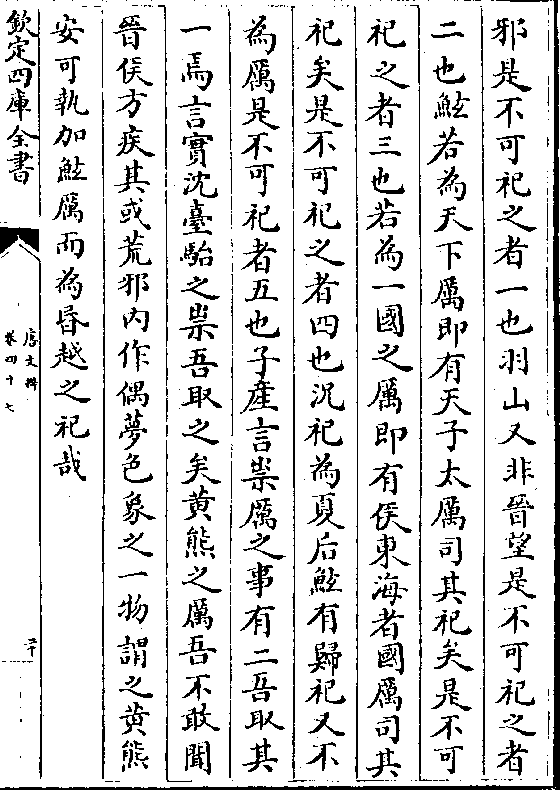 邪是不可祀之者一也羽山又非晉望是不可祀之者
二也鮌若為天下厲即有天子太厲司其祀矣是不可
祀之者三也若為一國之厲即有侯東海者國厲司其
祀矣是不可祀之者四也沉祀為夏后鮌有歸祀又不
為厲是不可祀者五也子產言祟厲之事有二吾取其
一焉言實沈臺駘之祟吾取之矣黄熊之厲吾不敢聞
晉侯方疾其或荒邪内作偶夢色象之一物謂之黄熊
安可執加鮌厲而為昏越之祀哉
欽定四庫全書
唐文粹
卷四十七
二十